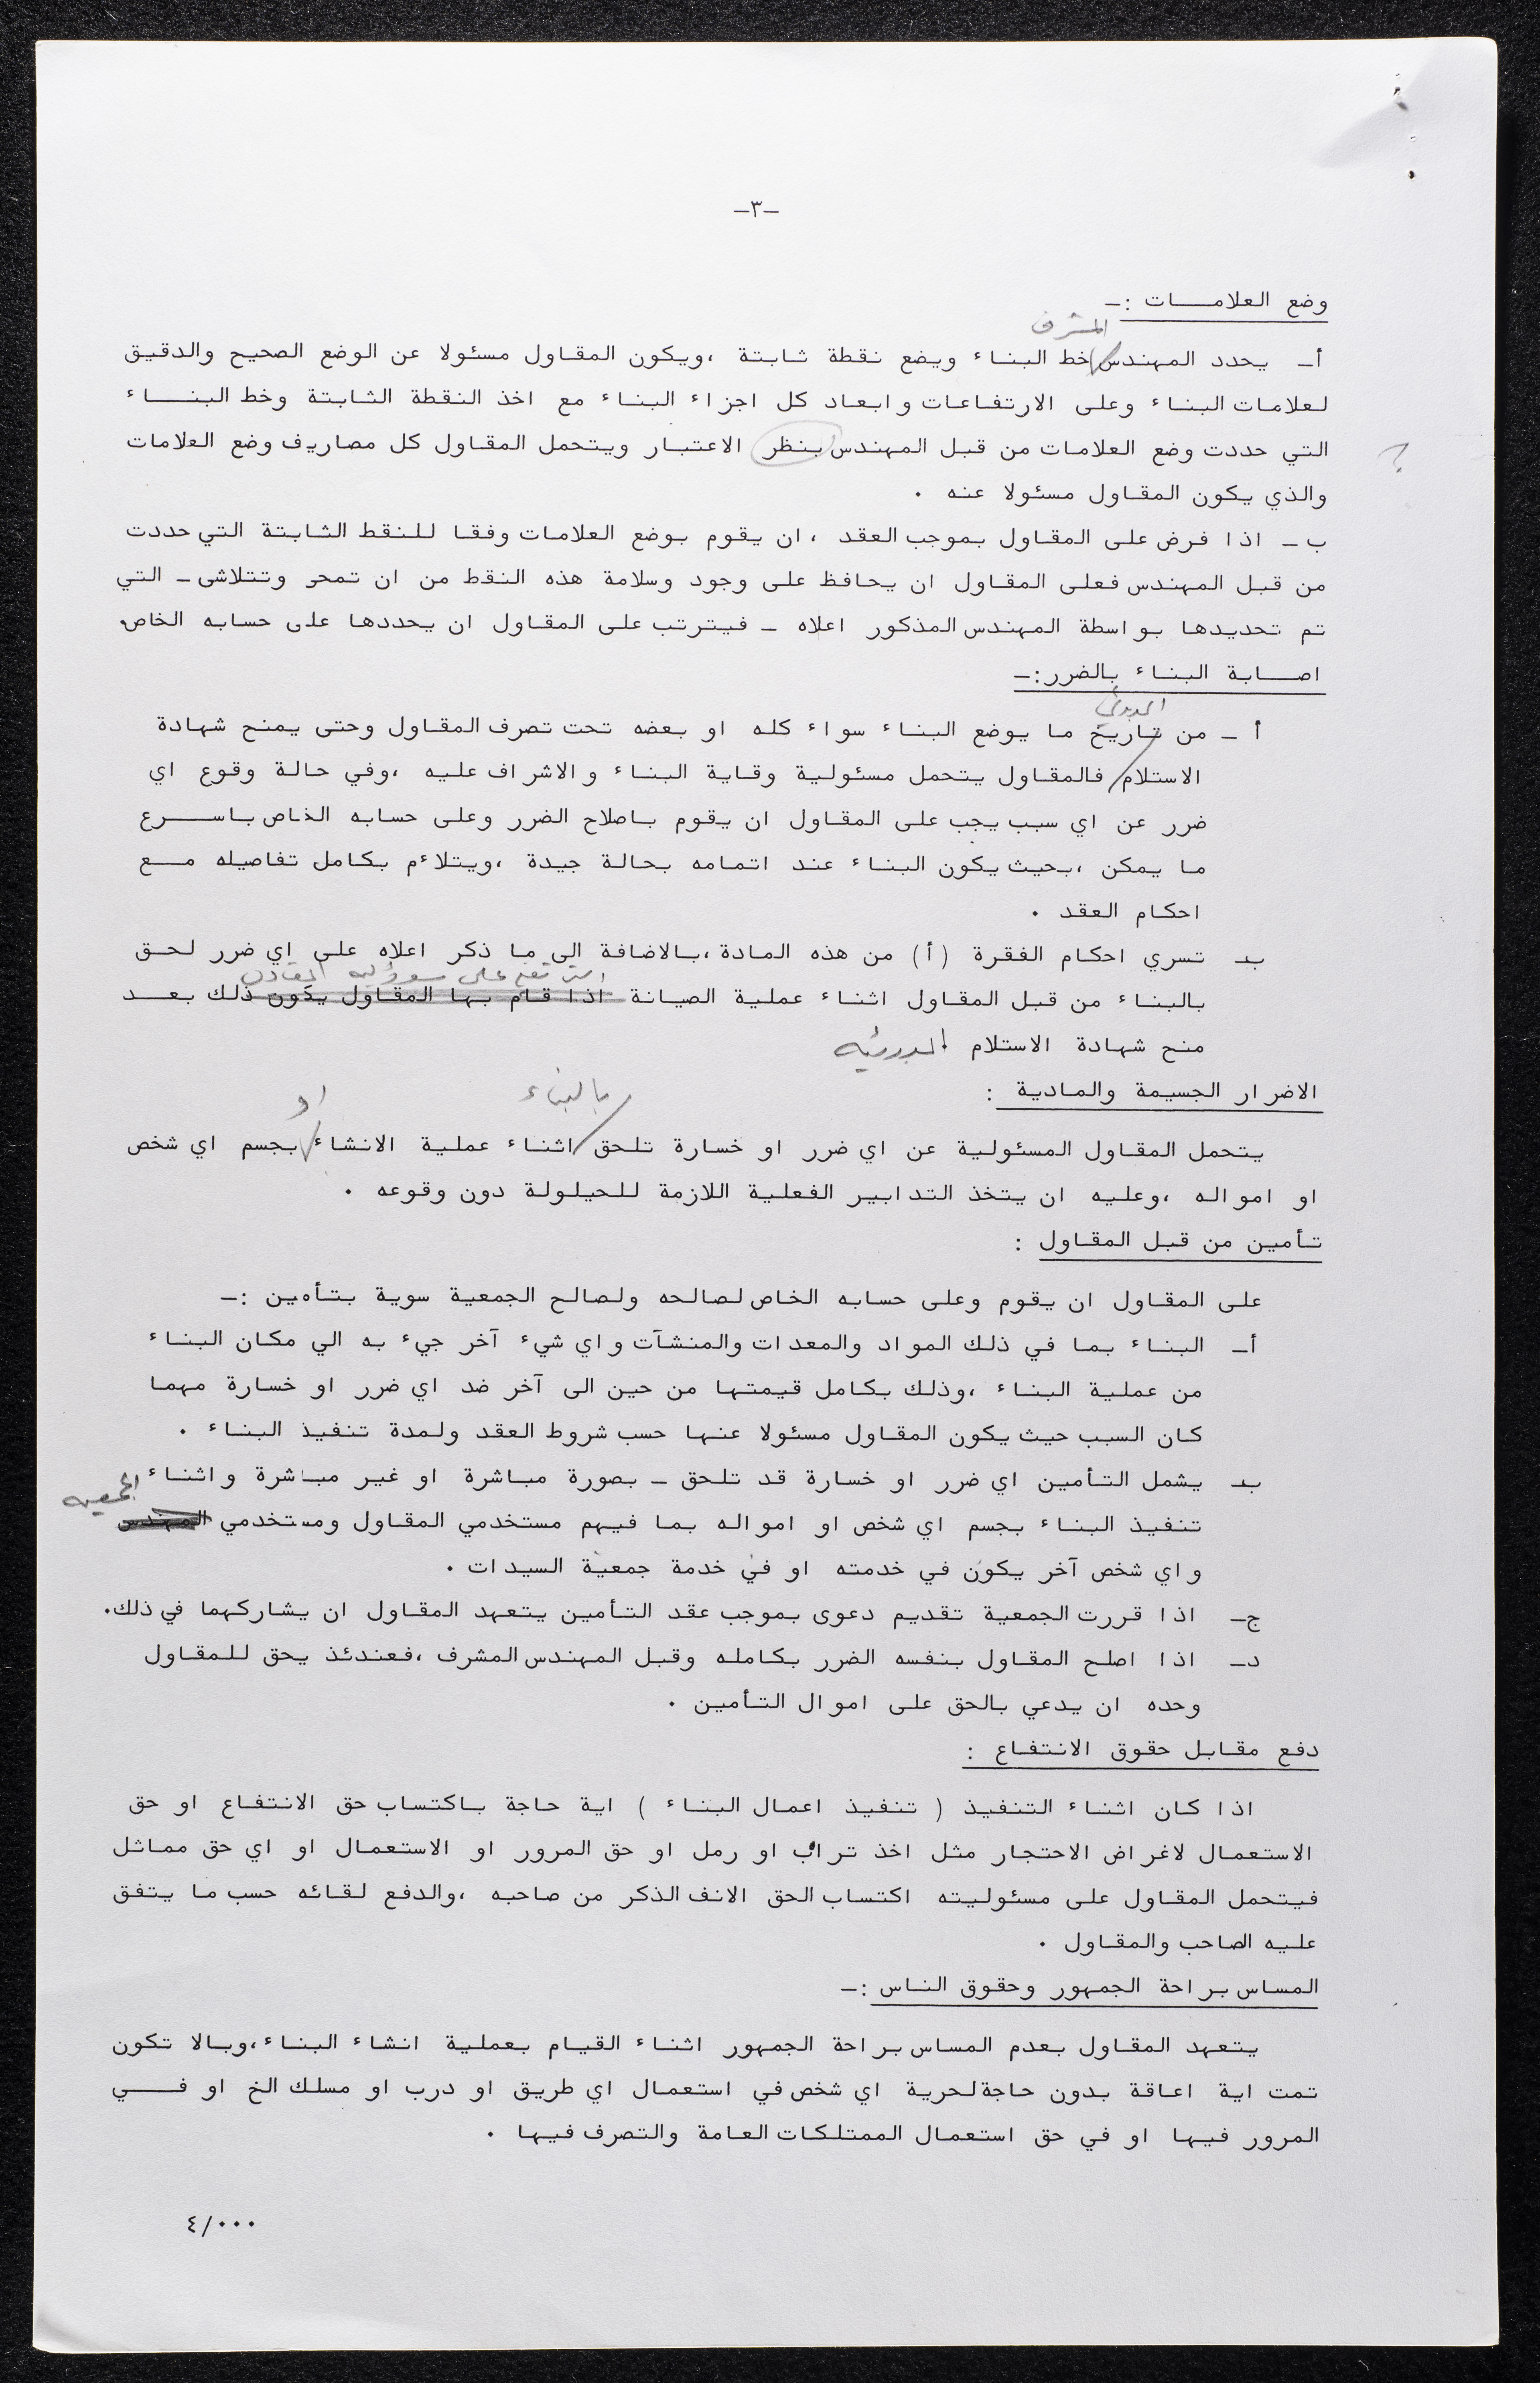 -٣-
وضع العلامـــات :-
المشرف
أ- يحدد المهندس خط البناء ويضع نقطة ثابتة ،ويكون المقاول مسئولا عن الوضع الصحيح والدقيق
لعلامات البناء وعلى الارتفاعات وابعاد كل اجزاء البناء مع اخذ النقطة الثابتة وخط البنــاء
التي حددت وضع العلامات من قبل المهندس بنظر الاعتبار ويتحمل المقاول كل مصاريف وضع العلامات ؟
والذي يكون المقاول مسئولا عنه .
ب - اذا فرض على المقاول بموجب العقد ، ان يقوم بوضع العلامات وفقا للنقط الثابتة التي حددت
من قبل المهندس فعلى المقاول ان يحافظ على وجود وسلامة هذه النقط من ان تمحى وتتلاشى - التي
تم تحديدها بواسطة المهندس المذكور اعلاه - فيترتب على المقاول ان يحددها على حسابه الخاص.
اصــابة البناء بالضرر:-
أ - من تاريخ ما يوضع البناء سواء كله او بعضه تحت تصرف المقاول وحتى يمنح شهادة
الاستلام فالمقاول يتحمل مسئولية وقاية البناء والاشراف عليه ،وفي حالة وقوع اي
ضرر عن اي سبب يجب على المقاول ان يقوم باصلاح الضرر وعلى حسابه الخاص باســرع
ما يمكن ،بحيث يكون البناء عند اتمامه بحالة جيدة ،ويتلاءم بكامل تفاصيله مــع
احكام العقد .
بـ تسري احكام الفقرة (أ) من هذه المادة ،بالاضافة الى ما ذكر اعلاه على اي ضرر لحـق
تقع على المقاول
بالبناء من قبل المقاول اثناء عملية الصيانة اذا قام بها المقاول يكون ذلك بعــد
منح شهادة الاستلام .
الاضرار الجسيمة والمادية :
بالبناء او
يتحمل المقاول المسئولية عن اي ضرر او خسارة تلحق اثناء عملية الانشاء بجسم اي شخص
او امواله ،وعليه ان يتخذ التدابير الفعلية اللازمة للحيلولة دون وقوعه .
تأمين من قبل المقاول :
على المقاول ان يقوم وعلى حسابه الخاص لصالحه ولصالح الجمعية سوية بتأمين :-
أ- البناء بما في ذلك المواد والمعدات والمنشآت واي شيء آخر جيء به الي مكان البناء
من عملية البناء ،وذلك بكامل قيمتها من حين الى آخر ضد اي ضرر او خسارة مهما
كان السبب حيث يكون المقاول مسئولا عنها حسب شروط العقد ولمدة تنفيذ البناء .
بـ يشمل التأمين اي ضرر او خسارة قد تلحق - بصورة مباشرة او غير مباشرة واثناء
الجمعيه
تنفيذ البناء بجسم اي شخص او امواله بما فيهم مستخدمي المقاول ومستخدمي المهندس
واي شخص آخر يكون في خدمته او في خدمة جمعية السيدات .
ج- اذا قررت الجمعية تقديم دعوى بموجب عقد التأمين يتعهد المقاول ان يشاركهما في ذلك.
د- اذا اصلح المقاول بنفسه الضرر بكامله وقبل المهندس المشرف ،فعندئذ يحق للمقاول
وحده ان يدعي بالحق على اموال التأمين .
دفع مقابل حقوق الانتفاع :
اذا كان اثناء التنفيذ ( تنفيذ اعمال البناء ) اية حاجة باكتساب حق الانتفاع او حق
الاستعمال لاغراض الاحتجار مثل اخذ تراب او رمل او حق المرور او الاستعمال او اي حق مماثل
فيتحمل المقاول على مسئوليته اكتساب الحق الانف الذكر من صاحبه ،والدفع لقائه حسب ما يتفق
عليه الصاحب والمقاول .
المساس براحة الجمهور وحقوق الناس :-
يتعهد المقاول بعدم المساس براحة الجمهور اثناء القيام بعملية انشاء البناء ،وبالا تكون
تمت اية اعاقة بدون حاجة لحرية اي شخص في استعمال اي طريق او درب او مسلك الخ او فــي
المرور فيها او في حق استعمال الممتلكات العامة والتصرف فيها .
٤/٠٠٠